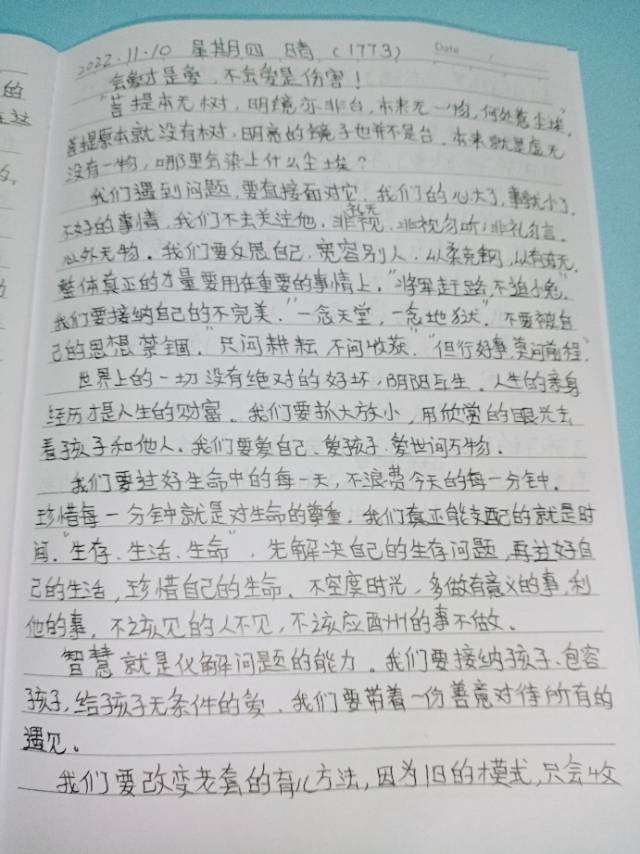 2022.11.10 星期四 晴 (1773) Date
会爱才是爱，不会爱是伤害！
“菩提本无树，明镜亦非台，本来无一物，何处惹尘埃。”
菩提原本就没有树，明亮的镜子也并不是台。本来就是虚无
没有一物，哪里会染上什么尘埃？
我们遇到问题，要直接面对它，我们的心大了，事就小了。
不好的事情，我们不去关注他，非礼勿视，非视勿听，非礼勿言。
心外无物。我们要反思自己，宽容别人，以柔克刚，从有到无。
整体真正的力量要用在重要的事情上。“将军赶路，不追小兔”。
我们要接纳自己的不完美。“一念天堂，一念地狱”。不要被自
己的思想禁锢。“只问耕耘，不问收获”。“但行好事，莫问前程”。
世界上的一切没有绝对的好坏，阴阳互生。人生的亲身
经历才是人生的财富。我们要抓大放小，用欣赏的眼光去
看孩子和他人。我们要爱自己、爱孩子、爱世间万物。
我们要过好生命中的每一天，不浪费今天的每一分钟。
珍惜每一分钟就是对生命的尊重。我们真正能支配的就是时
间。“生存、生活、生命”，先解决自己的生存问题，再过好自
己的生活，珍惜自己的生命。不空度时光，多做有意义的事，利
他的事。不该见的人不见，不该应酬的事不做。
智慧就是化解问题的能力。我们要接纳孩子、包容
孩子，给孩子无条件的爱。我们要带着一份善意对待所有的
遇见。
我们要改变老套的育儿方法，因为旧的模式，只会收